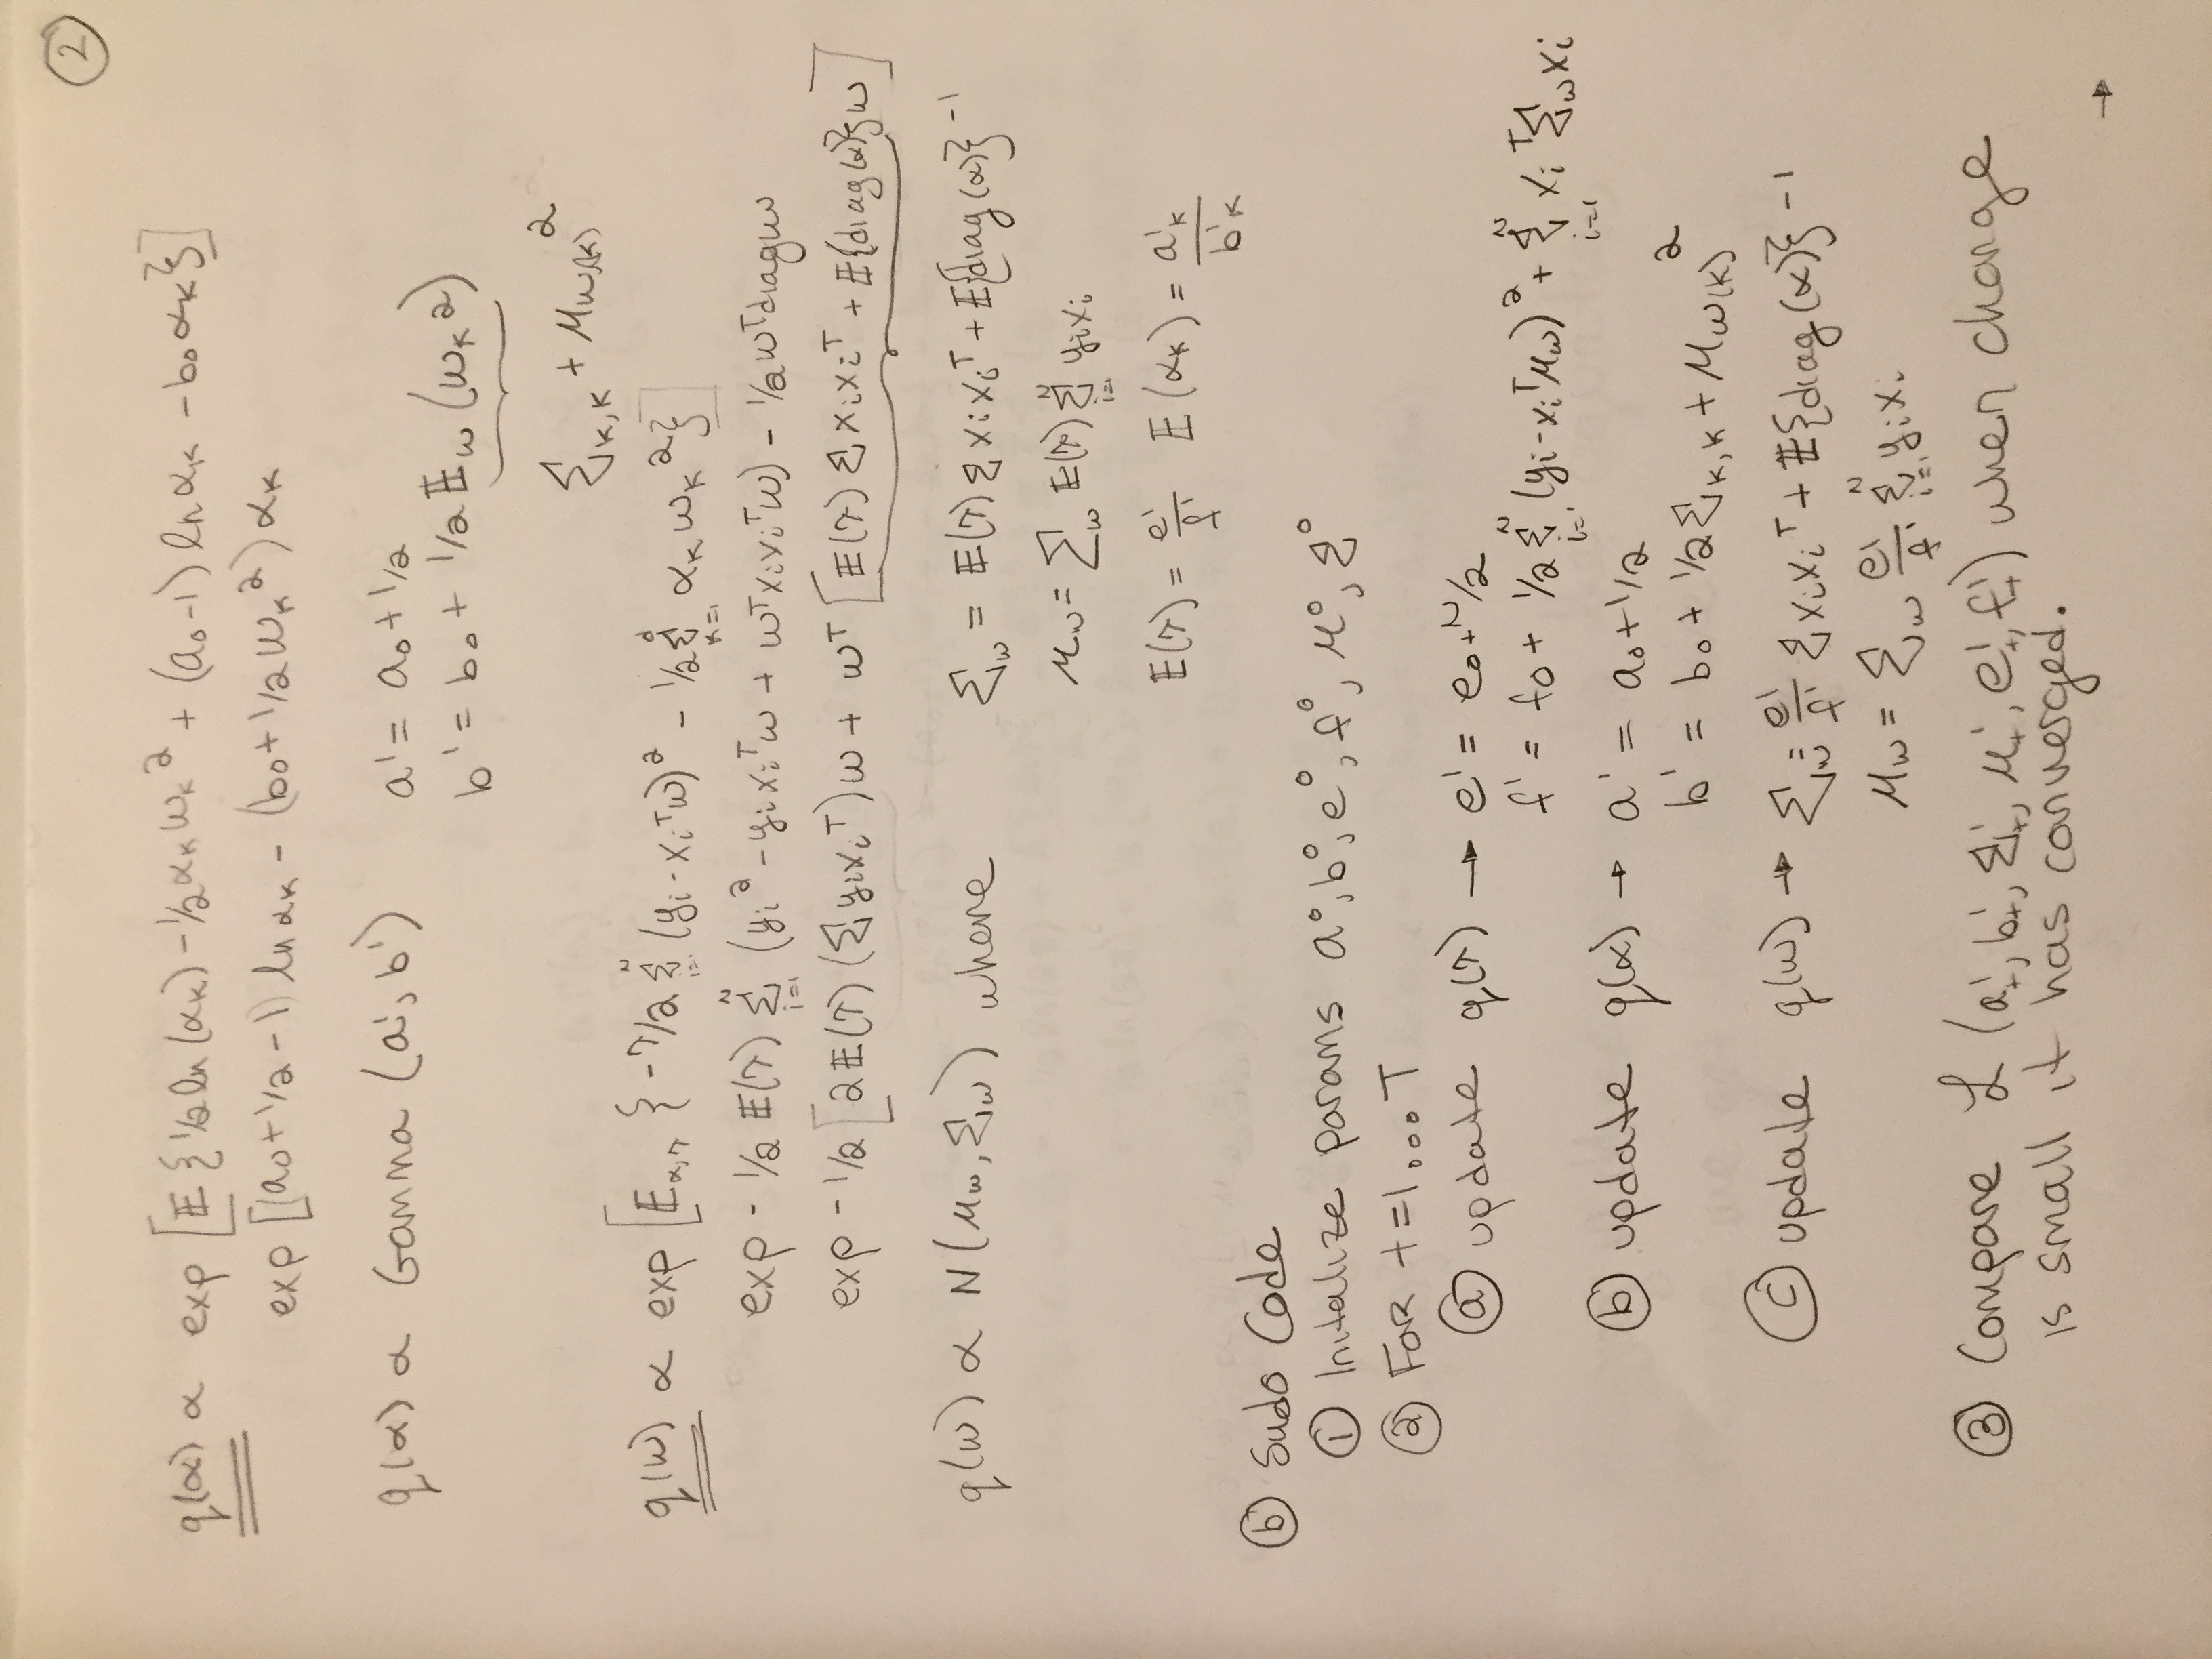 ②
q(α) ∝ exp [𝔼 {½ ln(αₖ) - ½ αₖ wₖ² + (a₀-1) ln αₖ - b₀ αₖ}]
exp [(a₀+½-1) ln αₖ - (b₀+½ wₖ²) αₖ
q(α) ∝ Gamma (a', b') a' = a₀+½
b' = b₀ + ½ 𝔼_w (wₖ²)
Σ_{k,k} + μ_{w(k)}²
q(w) ∝ exp [𝔼_{α,λ} { -λ/2 Σ_{i=1}^N (yᵢ-xᵢᵀw)² - ½ Σ_{k=1}^d αₖ wₖ²}]
exp - ½ 𝔼(λ) Σ_{i=1}^N (yᵢ² - yᵢxᵢᵀw + wᵀxᵢxᵢᵀw) - ½ wᵀdiagw
exp - ½ [2𝔼(λ) (Σyᵢxᵢᵀ)w + wᵀ [𝔼(λ) Σ xᵢxᵢᵀ + 𝔼{diag(α)}w]
q(w) ∝ N(μ_w, Σ_w) where Σ_w = 𝔼(λ) Σ xᵢxᵢᵀ + 𝔼{diag(α)}⁻¹
μ_w = Σ_w 𝔼(λ) Σ_{i=1}^N yᵢxᵢ
𝔼(λ) = e'/f' 𝔼(αₖ) = a'ₖ/b'ₖ
ⓑ Sudo Code
① Initalize params a⁰, b⁰, e⁰, f⁰, μ⁰, Σ⁰
② FOR t=1...T
ⓐ update q(λ) → e' = e₀+N/2
f' = f₀ + ½ Σ_{i=1}^N (yᵢ-xᵢᵀμ_w)² + Σ_{i=1}^N xᵢᵀΣ_w xᵢ
ⓑ update q(α) → a' = a₀+½
b' = b₀ + ½ Σ_{k,k} + μ_{w(k)}²
ⓒ update q(w) → Σ_w = e'/f' Σxᵢxᵢᵀ + 𝔼{diag(α)}⁻¹
μ_w = Σ_w e'/f' Σ_{i=1}^N yᵢxᵢ
③ Compare ℒ (a'ₜ, b'ₜ, Σ'ₜ, μ'ₜ, e'ₜ, f'ₜ) when change
is small it has converged.
→